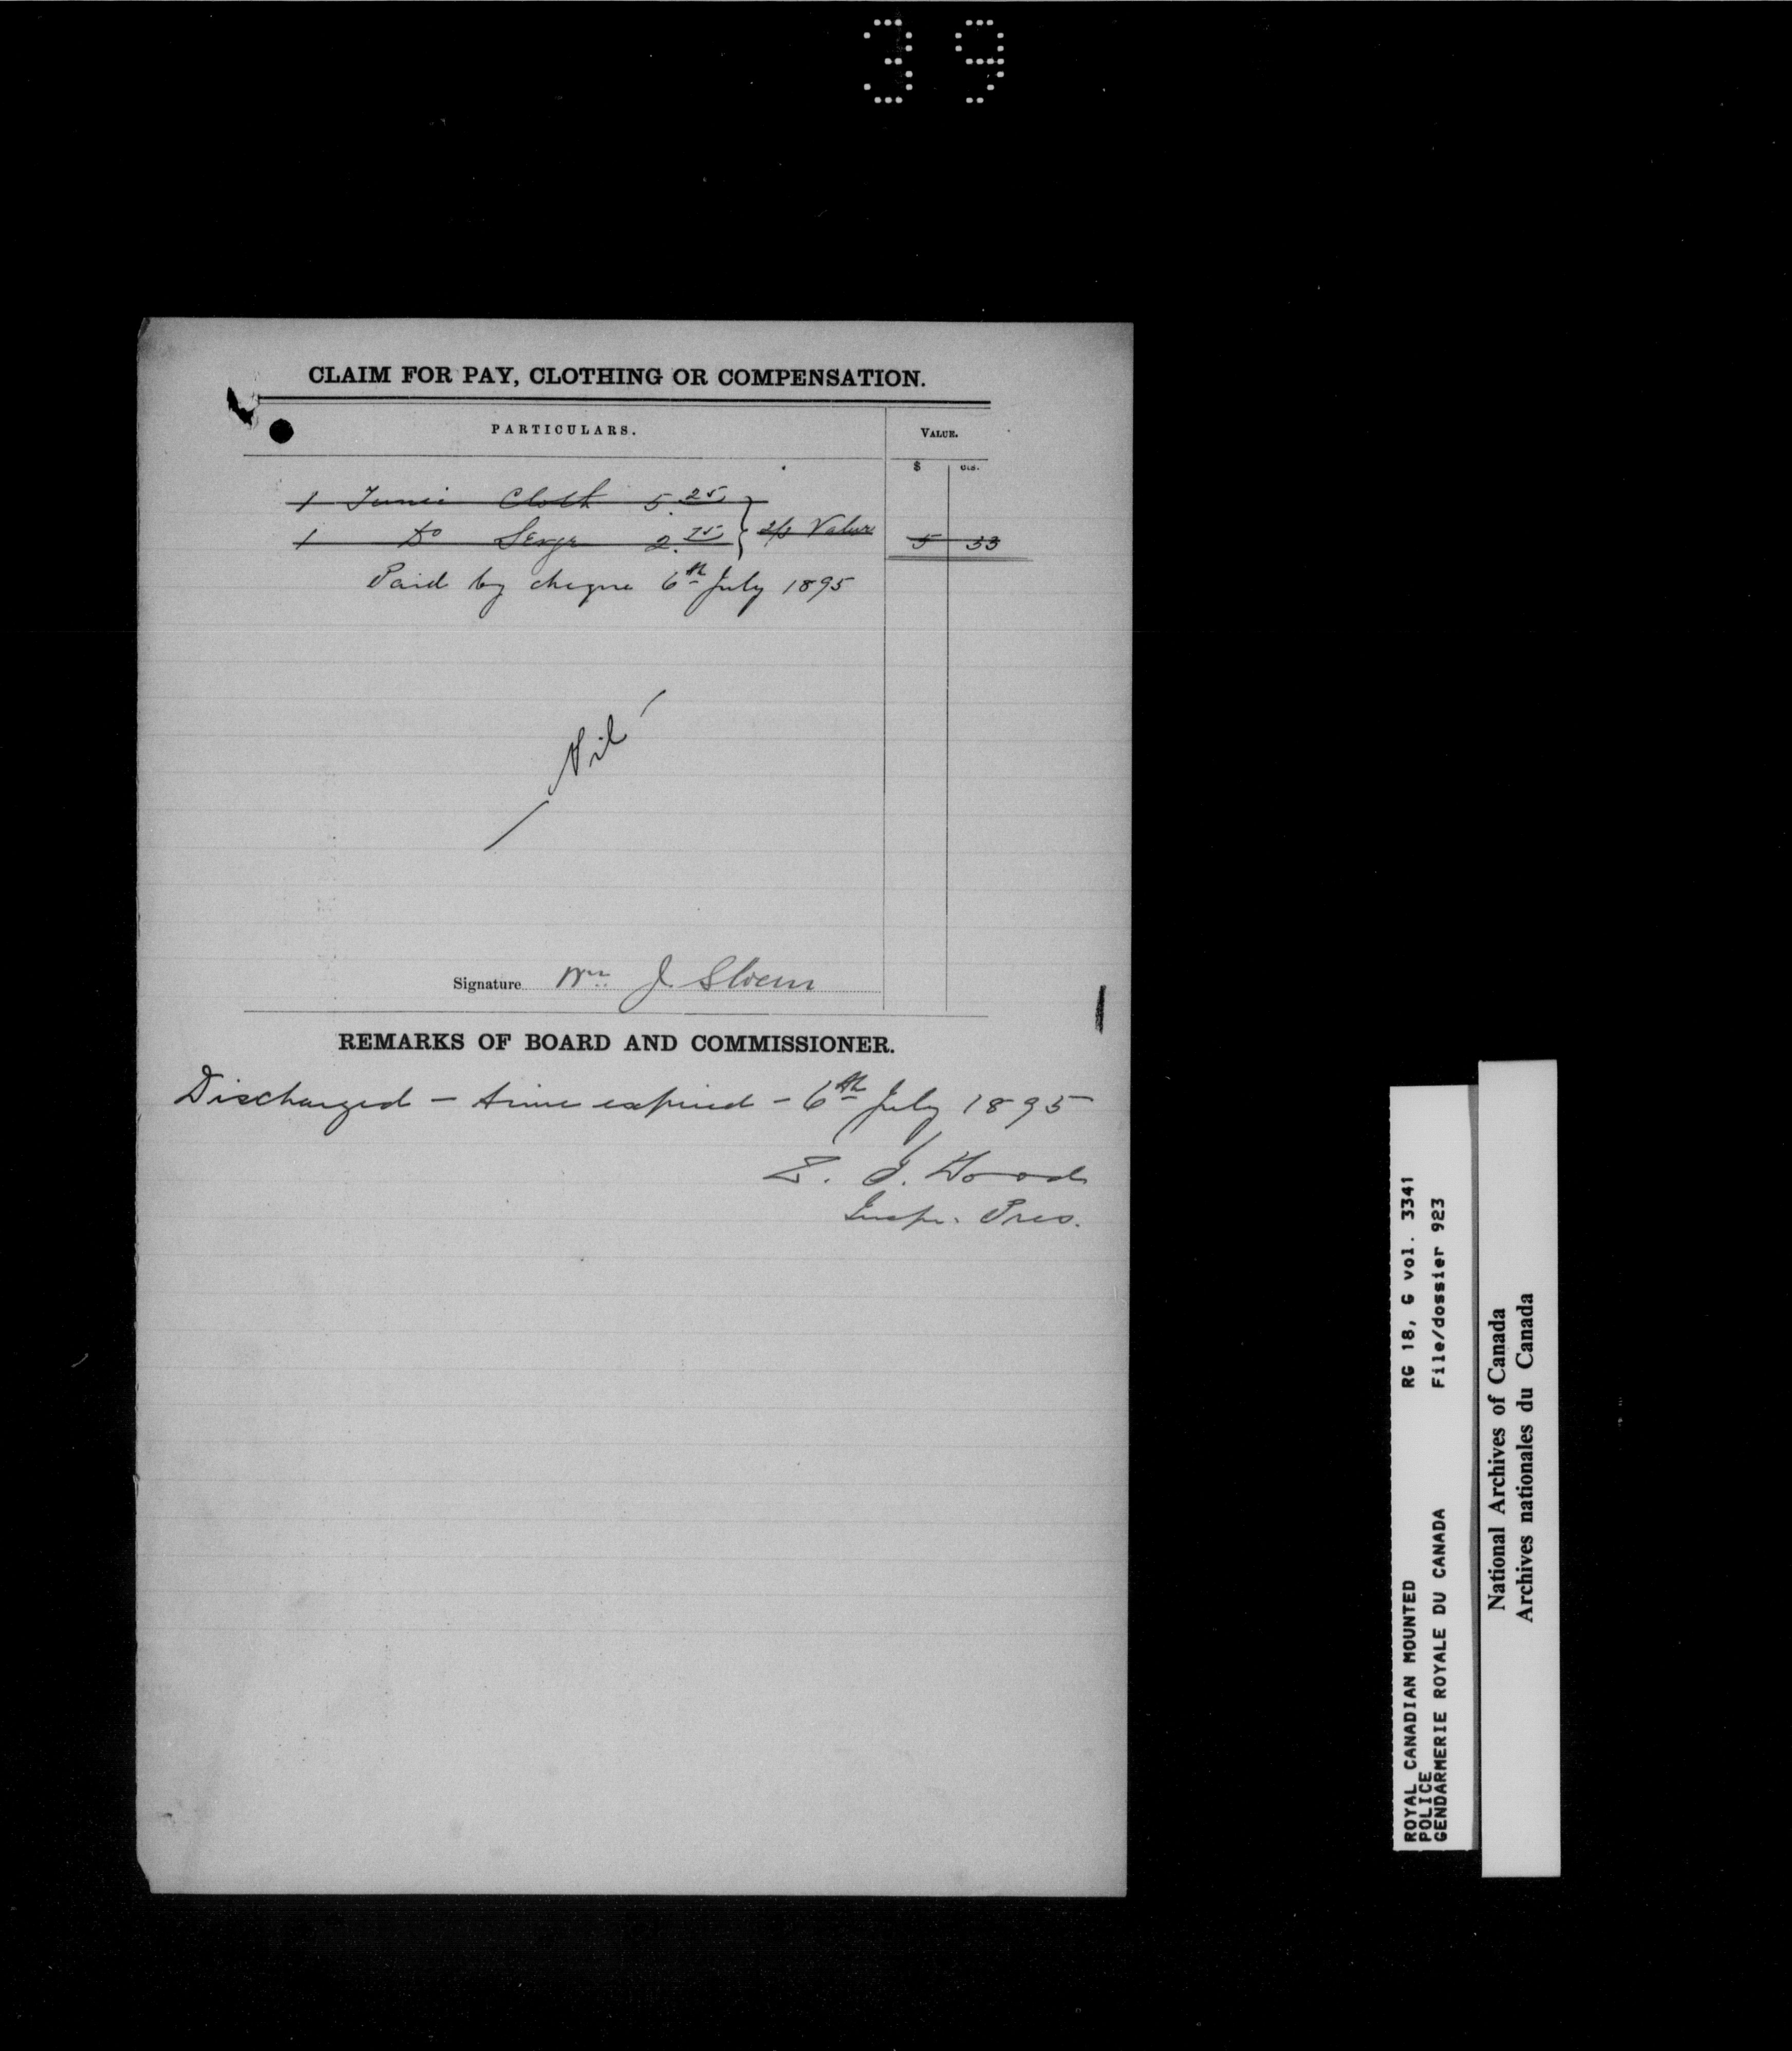 39
CLAIM FOR PAY, CLOTHING OR COMPENSATION.
PARTICULARS. VALUE.
$ cts.
1 Tunic Cloth 5.25
1 Do Serge 2.75 } 2/3 Value 5 33
Paid by cheque 6th July 1895
Nil
Signature Wm. J Sloem
REMARKS OF BOARD AND COMMISSIONER.
Discharged - time expired - 6th July 1895
Z. T. Wood
Inspr. Pres.
ROYAL CANADIAN MOUNTED RG 18, G vol. 3341
POLICE
GENDARMERIE ROYALE DU CANADA File/dossier 923
National Archives of Canada
Archives nationales du Canada